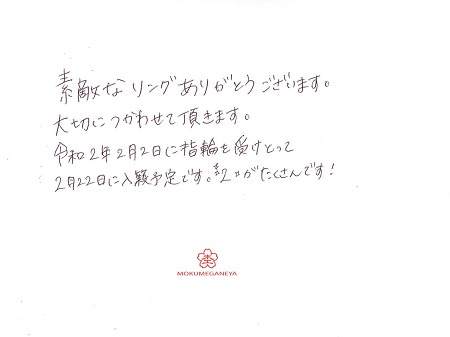 素敵なリングありがとうございます。
大切につかわせて頂きます。
令和2年2月2日に指輪を受けとって
2月22日に入籍予定です。"2"がたくさんです!
MOKUMEGANEYA